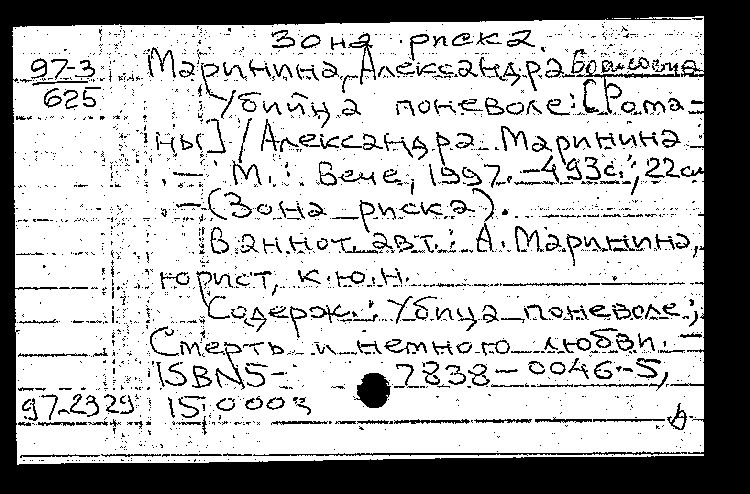 Зона риска.
97-3
625
Маринина, Александра Борисовна
Убийца поневоле: [Рома-
ны] / Александра Маринина
. — М. : Вече, 1997. — 493с. ; 22см
. — (Зона риска).
В аннот. авт.: А. Маринина,
юрист, к.ю.н.
Содерж.: Убица поневоле;
Смерть и немного любви. —
ISBN5- 7838-0046-5,
97-2329 15 0003